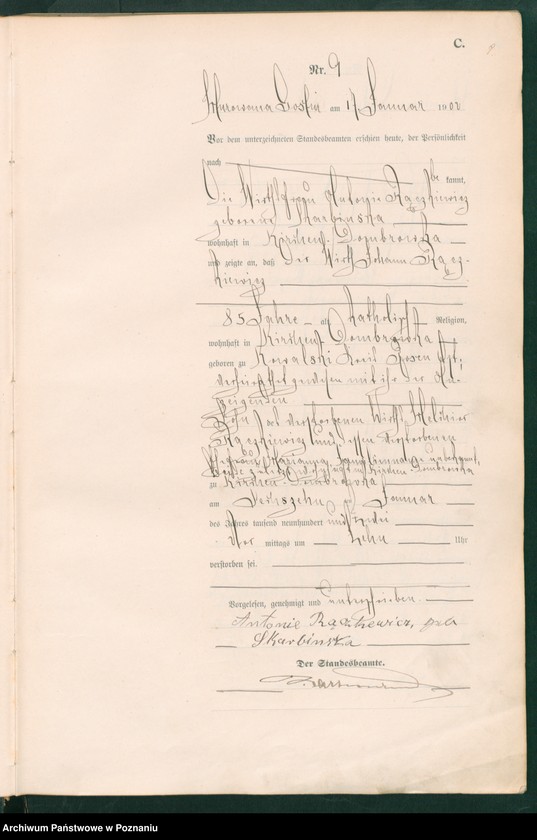 C.
9
Nr. 9
Murowana Goslin am 17 Januar 1902
Vor dem unterzeichneten Standesbeamten erschien heute, der Persönlichkeit
nach be kannt,
die Wirthsfrau Antonie Rączkiewicz
geborene Skarbinska
wohnhaft in Kirchen Dombrowka
und zeigte an, daß der Wirth Johann Rącz-
kiewicz
85 Jahre alt, katholischer Religion,
wohnhaft in Kirchen Dombrowka
geboren zu Kowalski Kreis Posen Ost,
verheirathet gewesen mit ihr der An-
zeigenden
Sohn des verstorbenen Wirths Melchior
Rączkiewicz und dessen verstorbenen
Ehefrau Marianna unbekannt,
zu Kirchen Dombrowka
am sechszehn ten Januar
des Jahres tausend neunhundert und zwei
Vor mittags um zehn Uhr
verstorben sei.
Vorgelesen, genehmigt und unterschrieben.
Antonie Rączkiewicz, geb
Skarbinska
Der Standesbeamte.
Archiwum Państwowe w Poznaniu